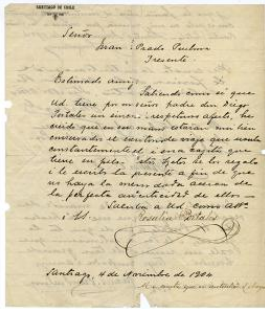 SANTIAGO DE CHILE
Señor
Juan Prado Puelma
Presente
Estimado amigo:
Sabiendo como sé que
Ud. tiene por mi señor padre don Diego
Portales un sincero i respetuoso afecto, he
creido que en sus manos estarán mui bien
el continuo de viaje que usaba
constantemente él i una cajita que
tiene en pelo. Estos objetos se los regalo
i le escribo la presente a fin de que
no haya la menor duda acerca de
la perfecta autenticidad de ellos.
Saluda a Ud. como Atta.
i SS.
Rosalia Portales
Santiago, 4 de Noviembre de